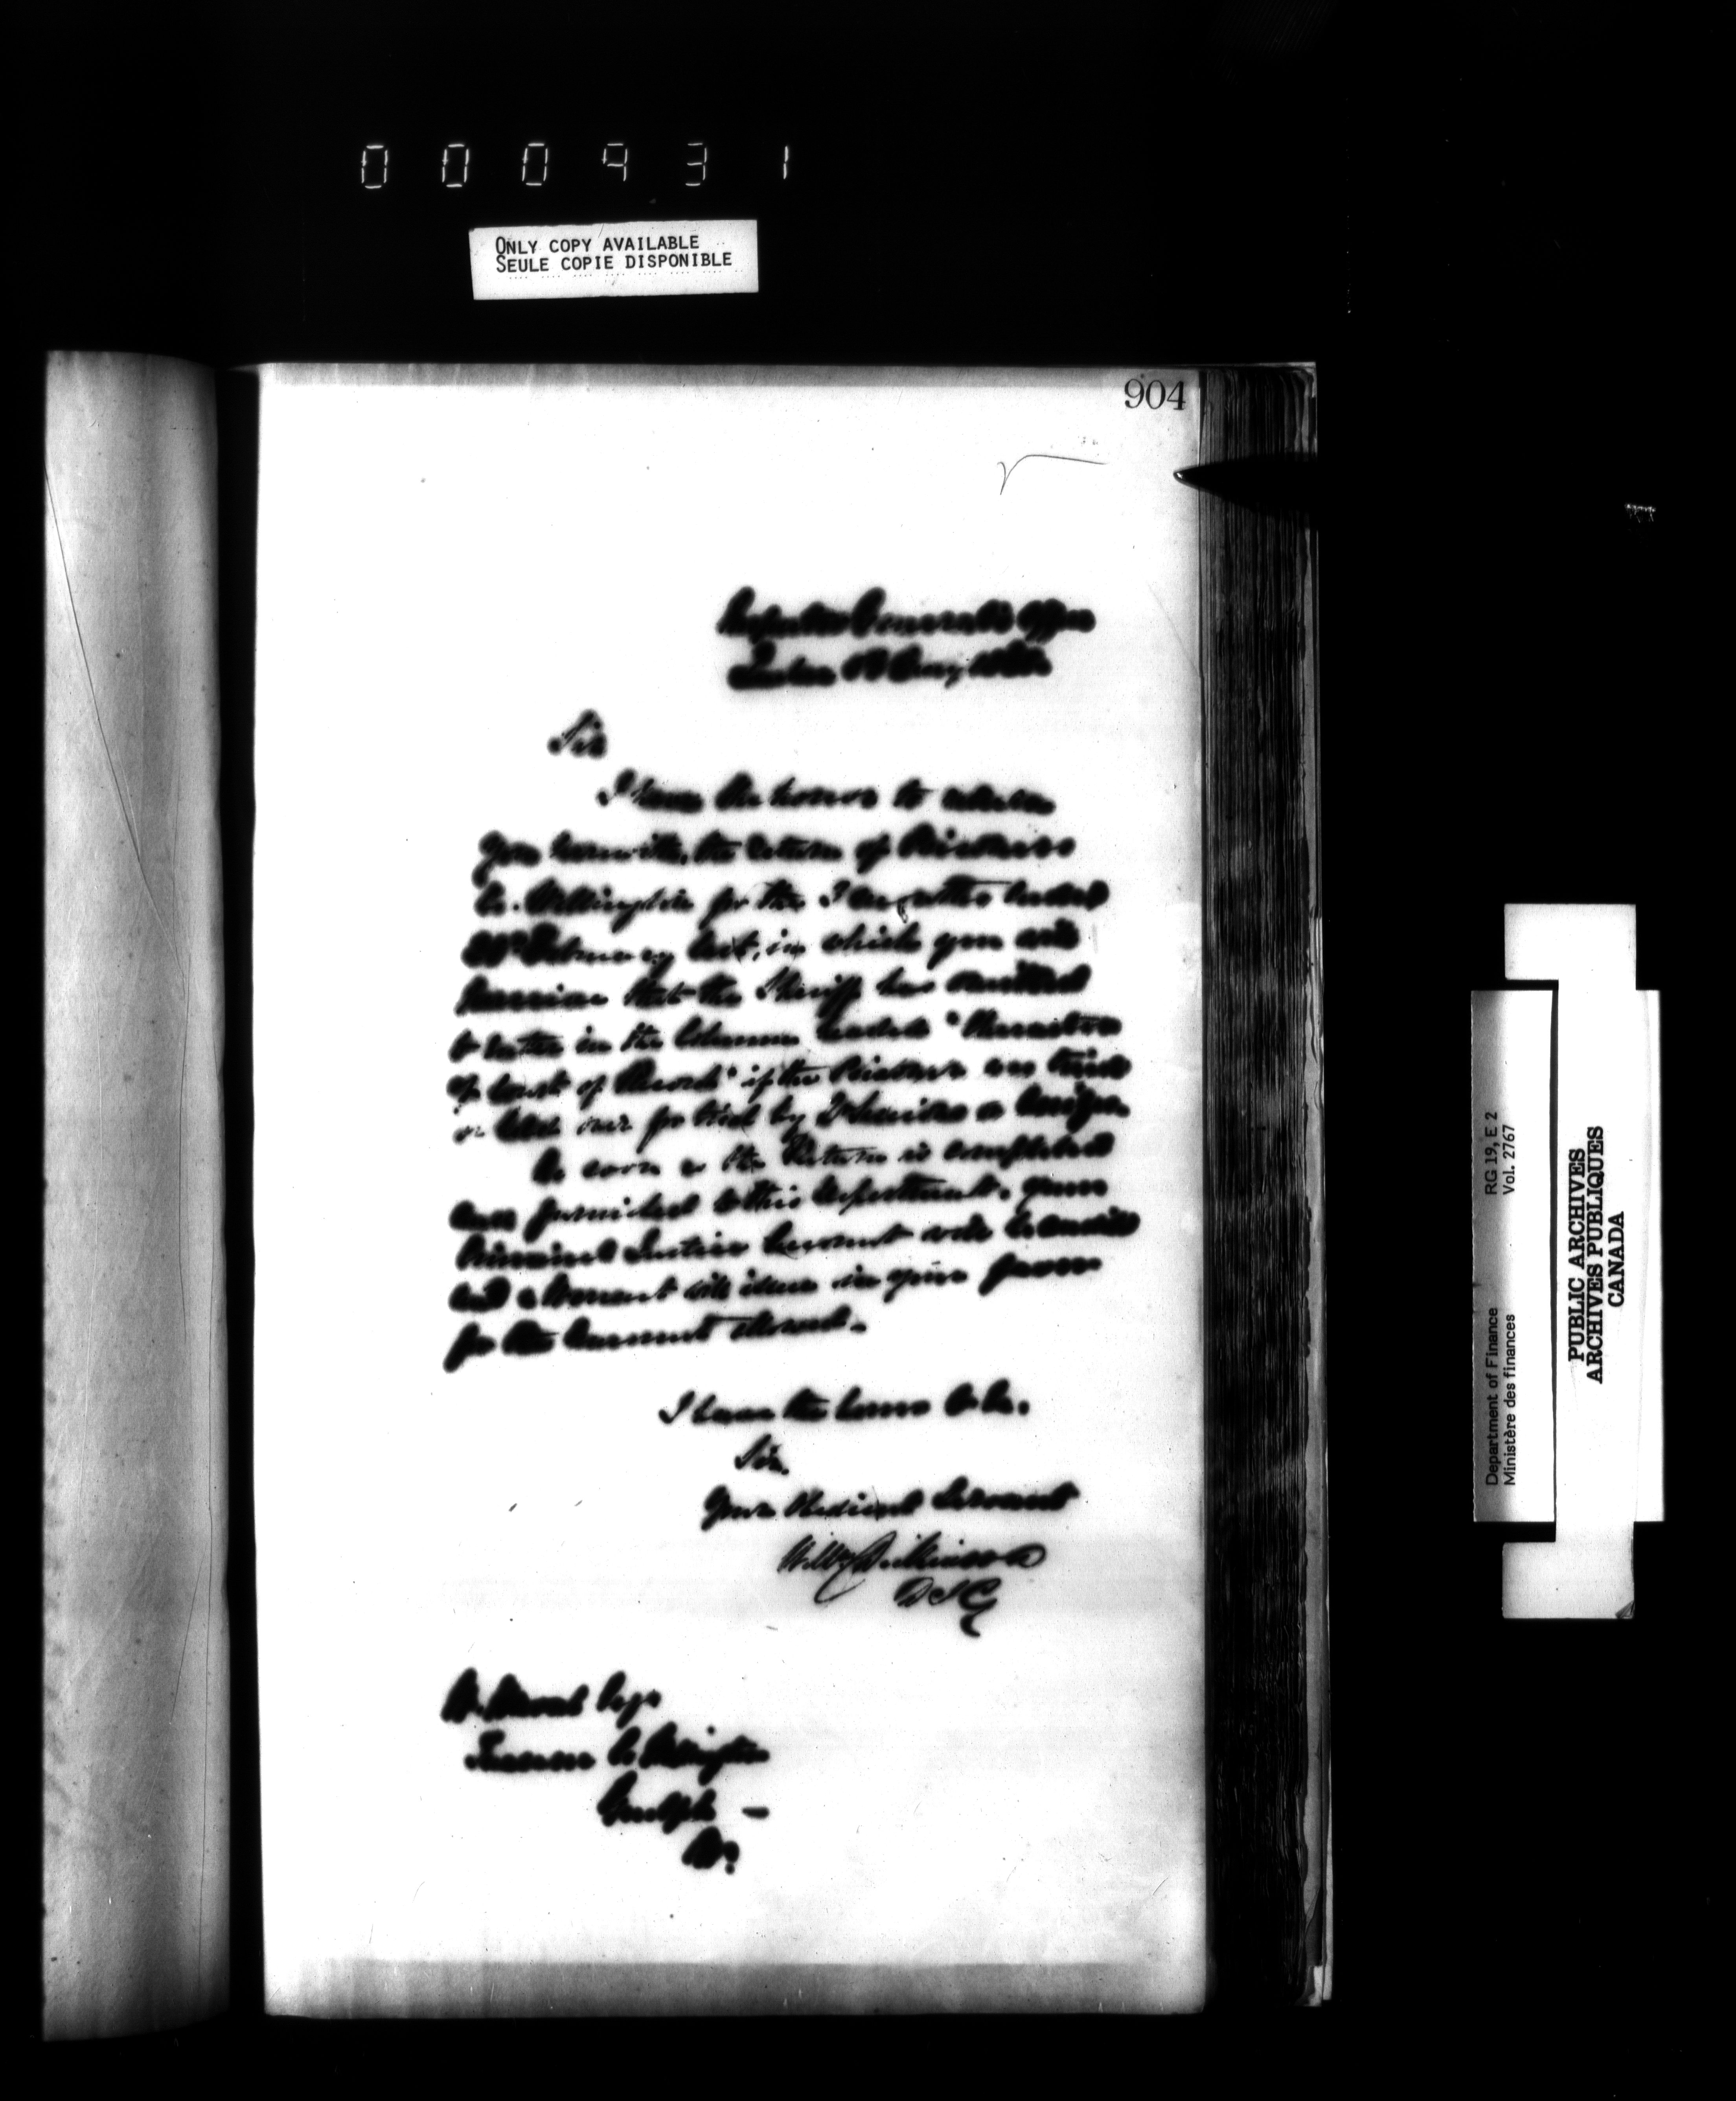 000931
ONLY COPY AVAILABLE
SEULE COPIE DISPONIBLE
904
Inspector General's Office
Quebec
Sir
I have the honor to return
you herewith, the return of Prisoners
Co. Wellington for the 3 months ended
February last, in which you will
perceive that the Sheriff has omitted
to enter in the Column headed "
of Court of Record" if the Prisoners was tried
or for trial by a
As soon as the Return is completed
and furnished to this department, your
Criminal Justice Account will be
and a Warrant will issue in your favor
for the amount
I have the honor to be,
Sir,
Your Obedient Servant
Willm Dickinson
D I G
Esqr
Treasurer Co Wellington
Guelph —
RG 19, E 2
Vol. 2767
Department of Finance
Ministère des finances
PUBLIC ARCHIVES
ARCHIVES PUBLIQUES
CANADA